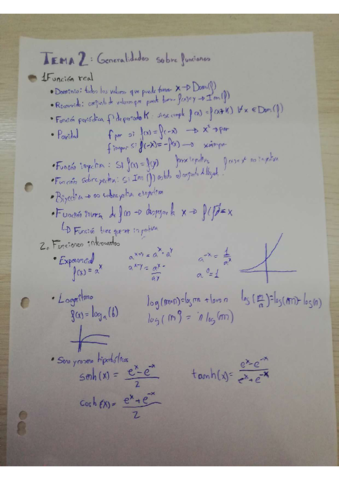 TEMA 2: Generalidades sobre funciones
1. Función real
• Dominio: todos los valores que puede tomar x → Dom(f)
• Recorrido: conjunto de valores que puede tomar f(x)=y → Im(f)
• Función periódica f de periodo K f(x) = f(x+K) ∀ x ∈ Dom(f)
• Paridad f par si f(x) = f(-x) → x² → par
f impar si f(-x) = -f(x) → impar
• Función inyectiva: Si f(x) = f(y)
• Función sobreyectiva: si Im(f)
• Biyectiva → es sobreyectiva e inyectiva
• Función inversa de f(x) → despejar x →
↳ Función tiene que ser inyectiva
2. Funciones
• Exponencial a^{x+y} = a^x · a^y a^{-x} = 1/a^x
f(x) = a^x a^{x-y} = a^x/a^y a^0 = 1
• Logaritmo log(m·n) = log m + log n log(m/n) = log(m) - log(n)
f(x) = log_a(x) log(m^n) = n log(m)
• Seno y coseno hiperbólico
senh(x) = (e^x - e^{-x})/2 tanh(x) = (e^x - e^{-x})/(e^x + e^{-x})
cosh(x) = (e^x + e^{-x})/2